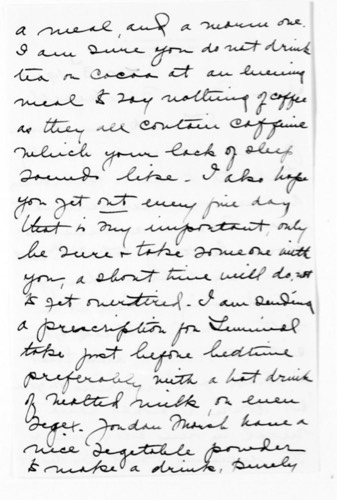 a meal, and a warm one.
I am sure you do not drink
tea or cocoa at an evening
meal to say nothing of coffee
as they all contain caffeine
which your lack of sleep
sounds like. I also hope
you get out every fine day
that is very important, only
be sure + take someone with
you, a short time will do, not
to get overtired. I am sending
a prescription for Luminal
take just before bedtime
preferably with a hot drink
of malted milk, or even
Jordan Marsh have a
nice vegetable powder
to make a drink, purely